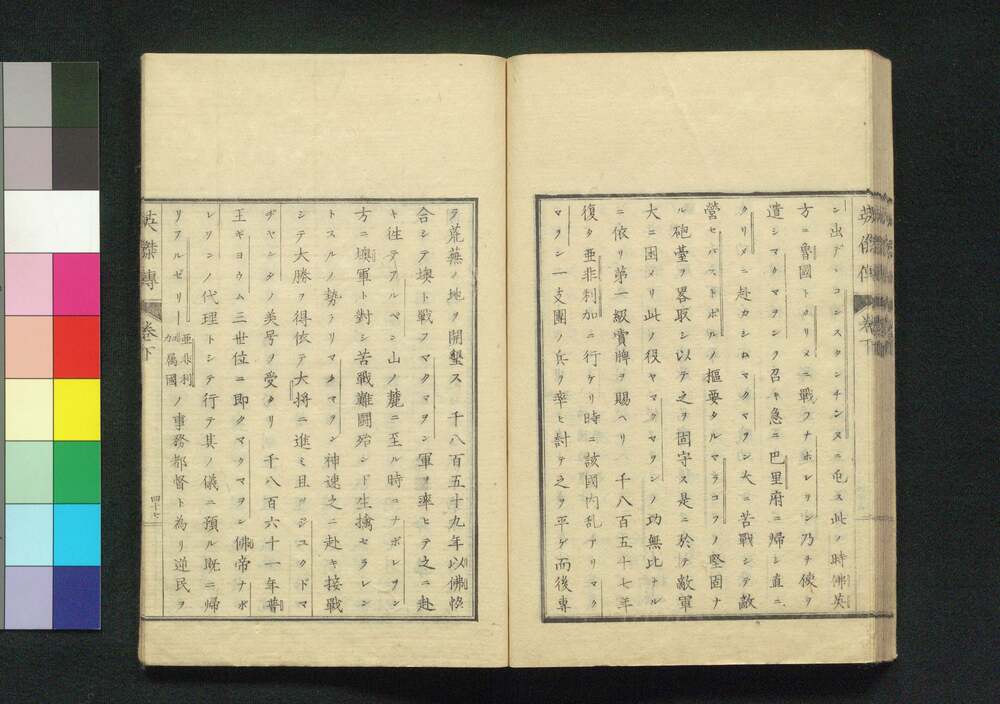 ン出デ、コンスタンチンヌニ屯ス此ノ時佛英
方ニ魯國トクリメニ戰フナホレリン乃チ使ヲ
遣シマクマヲンヲ召サ急ニ巴里府ニ帰シ直ニ
クリメニ赴カシムマクマヲン大ニ苦戰シテ敵
營セバストポルノ樞要タルマラコフノ堅固ナ
ル砲臺ヲ畧取シ以テ之ヲ固守ス是ニ於テ敵軍
大ニ困メリ此ノ役ヤマクマヲンノ功無比ナル
ニ依リ第一級賞牌ヲ賜ヘリ、千八百五十七年
復タ亜非利加ニ行ケリ時ニ該國内乱アリマク
マヲン一支團ノ兵ヲ率ヒ討テ之ヲ平ゲ而後専
ヲ荒蕪ノ地ヲ開墾ス、千八百五十九年以佛
合シテ墺ト戰フマクマヲン軍ヲ率ヒテ之ニ赴
キ往テアルペン山ノ麓ニ至ル時ニナポレヲン
方ニ墺軍ト對シ苦戰難鬪殆ンド生擒セラレン
トスルノ勢アリマクマヲン神速之ニ赴キ接戰
シテ大勝ヲ得依テ大将ニ進ミ且ツジユクドマ
ヂヤンタノ美号ヲ受タリ 千八百六十一年普
王ギヨウム三世位ニ即クマクマヲン佛帝ナポ
レヲンノ代理トシテ行テ其ノ儀ニ預ル既ニ帰
リアルゼリー亜非利加属國ノ事務都督ト為リ逆民ヲ
英傑傳 卷下 四十七